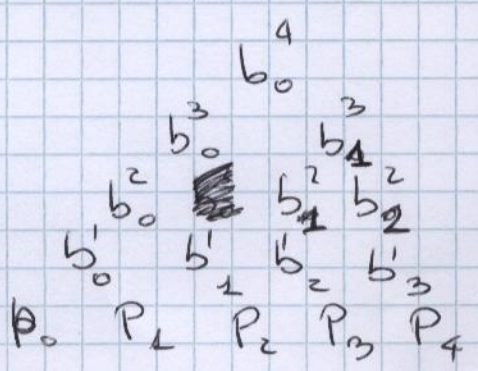 b₀⁴
b₀³ b₁³
b₀² b₁² b₂²
b₀¹ b₁¹ b₂¹ b₃¹
P₀ P₁ P₂ P₃ P₄